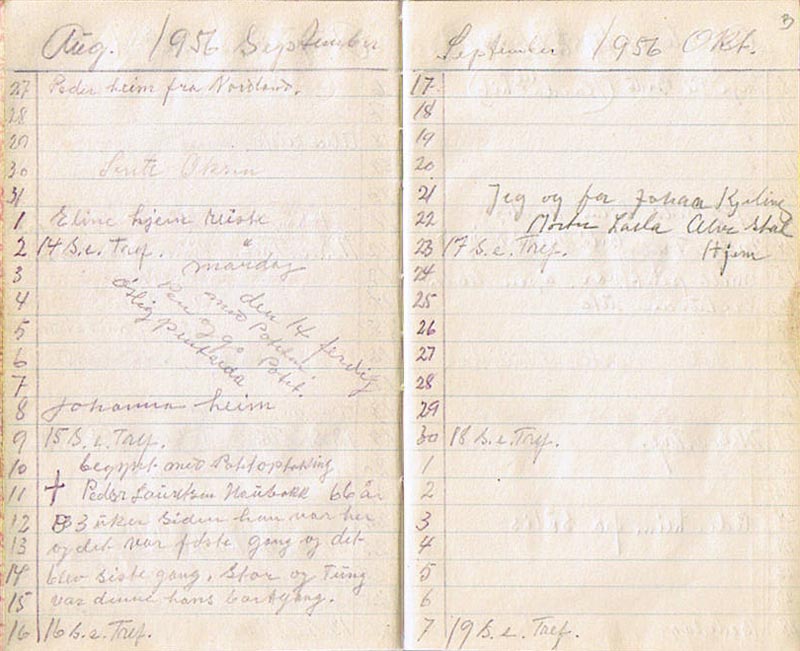 Aug. 1956 September
27 Peder heim fra Nordland.
28
29
30
31
1 Eline hjem reiste
2 14 S. e. Tref.
mandag
3
den 14 ferdig
4
med
5
6
7
8 Johanna heim
9 15 S. e. Tref.
10 begynt med Potitoptaking
11 † Peder Lauritsen Naubakk 66 år
12 3 uker siden han var her
13 og det var første gang og det
14 blev siste gang. Stor og Tung
15 var denne hans bortgang.
16 16 S. e. Tref.
September 1956 Okt. 3
17
18
19
20
21 Jeg og far Johan
22 Laila
23 17 S. e. Tref. Hjem
24
25
26
27
28
29
30 18 S. e. Tref.
1
2
3
4
5
6
7 19 S. e. Tref.